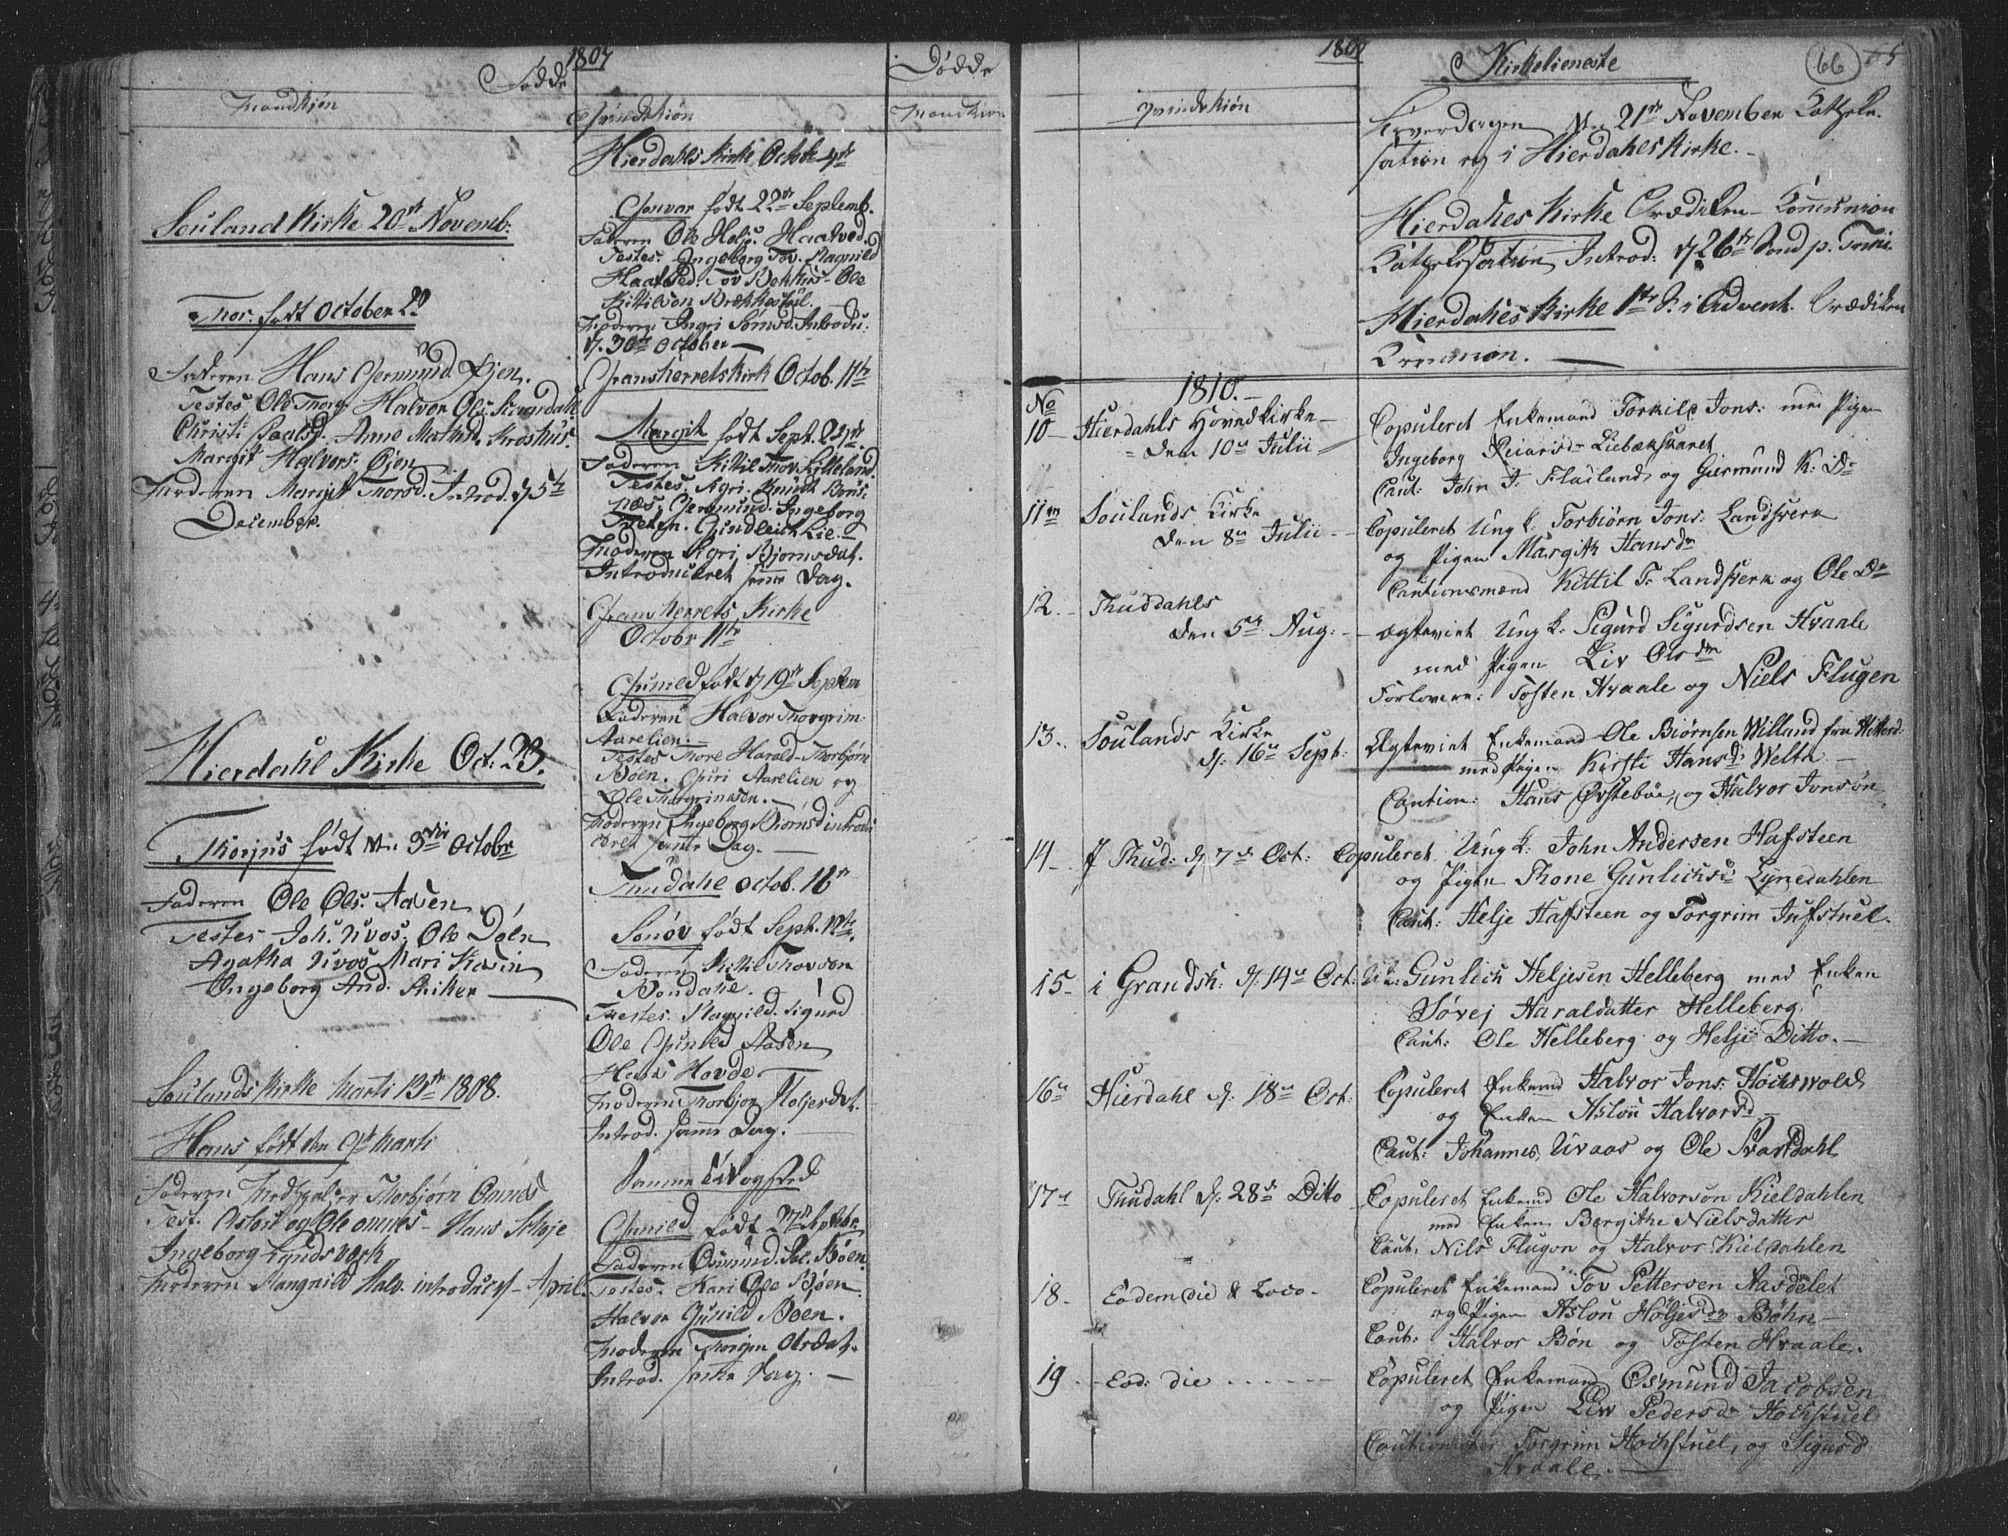 1807
Fødde
Mandkiøn
Souland Kirke 20de Novemb.
Thor. født October 20
Faderen Hans Giermund Øjen.
Testes Ole Thorg. Halvor Ols.
Christi Paalsd. Anne
Margit Halvors. Øjen
Moderen Margit Thorsd. Introd. d. 5te
December.
Hierdahl Kirke Oct. 23.
Thorjus født den 3die Octobr
Faderen Ole Ols. Aasen
Testes Joh. Uvos, Ole Døln
Agatha Uvos Mari Kasin
Ingeborg And.
Soulands Kirke Marti 13de 1808.
Hans født den Marti
Faderen Thorbjørn Omnes
Test. og Ole Omnes - Hans
Ingeborg Lyndsværk
Moderen Rangnild Halv. introduc. April.
Qvindekiøn
Hierdahls Kirke Octbr 4de
Gonvor født 22de Septemb.
Faderen Ole Holjs Haatved.
Testes. Ingeborg Tov. Ragnild
Haatved. Tov Ole
Kitilson
Moderen Ingri Introdu.
d. 30te October
Gransherretskirk Octob. 11te
Margit født Sept.
Faderen Kitil Thov. Lilleland.
Testes. Agri. Knudt
næs, Giermund. Ingeborg
Gundleich Lie.
Moderen Sigri Bjørnsdat.
Introduceret samme Dag.
Gransherrets Kirke
Octobr 11te
Gunild født d. 19de Septem
Faderen Halvor Thorgrim.
Aarelien.
Testes Thore Harald. Thorbjørn
Bøen. Guri Aarelien og
Ole Thorgrimsen.
Moderen Ingeborg introdu
ceret samme Dag.
Tuudahl Octob. 16de
født Sept.
Faderen Kittil Thovson
Bondahl.
Testes. Ragnild. Sigurd
Ole Gunild Aasen
Hovde.
Moderen Thorbjør Holjesdat.
Introd. samme Dag.
Samme Tid og Sted
Gunild født 27de Septebr.
Faderen Osmund Bøen
Testes. Kari Ole Bøen
Halvor Gunild Bøen.
Moderen Thorgun Olsdat.
Introd. samme Dag.
Dødde
Mandkiøn
1807
Qvindekiøn
Kirketieneste
66
Løverdagen den 21de November Cathechi
sation og i Hierdahls Kirke.
Hierdahls Kirke Prædiken Communion
Cathechisation Introd: d. 26de Sond. p. Trini
Hierdahls Kirke 1ste S. i Advent. Prædiken
Communion.
1810.
No
10 - Hierdahls Hovedkirke -
Den 10de Julii
Copuleret Enkemand Torkild Jons: med Pigen
Ingeborg Reiarsd.
Caut: John J. Flatland, og Giermund K: Do
11te Soulands Kirke
Den 8de Julii
Copuleret Ung k: Torbiørn Jons: Landsverk
og Pigen Margith Hansdr
Cautionsmænd Kittil T. Landsverk og Ole Do
12. Thuddahls
Den 5te Aug:
Ægteviet Ung k: Sigurd Sigurdsen Hvaale
med Pigen Liv Olsdr
Forlovere: Tosten Hvaale og Niels Flugen
13. Soulands Kirke
d: 16de Sept:
Ægteviet Enkemand Ole Biørnsen Willand fra Hitterd:
med Pigen Kirsti Hansd: Weltn
Caution: Hans Ørstebøe, og Halvor Jonsøn
14 - J Thud: d: 7de Oct:
Copuleret Ung k: John Andersen Hafsteen
og Pigen Thone Gunlichsdr Lynedahlen
Caut: Helje Hafsteen og Torgrim Jufstuel.
15 - i Grandsh: d: 14de Oct:
Gunlich Heljesen Helleberg med Enken
Søvej Haraldatter Helleberg.
Caut: Ole Helleberg og Helje Ditto.
16de Hierdahl d: 18de Oct:
Copuleret Enkemd Halvor Jons: Hochswold
og Enken Aslou Halvorsd
Caut: Johannes Uvaas og Ole Svartdahl
17de Thudahl d: 28de Ditto
Copuleret Enkemd Ole Halvorsøn Kieldahlen
med Enken Bergithe Nielsdatter
Caut: Nils Flugon og Halvor Kieldahlen
18. Eodem die & Loco.
Copuleret Enkemand Tov Pettersen Aasdelet
og Pigen Aslou Høljesdr Bøhn
Caut: Halvor Bøn og Tosten Hvaale.
19 Eod: die
Copuleret Enkemand Osmund Jacobsen
og Pigen Liv Pedersdr Hochstuel
Torgrim Hochstuel, og Sigurd
Hvaale.